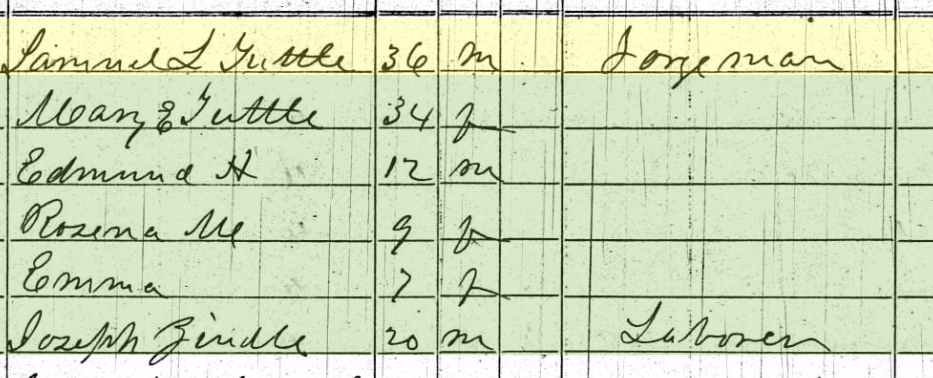 Samuel L Tuttle 36 m Forgeman
Mary E Tuttle 34 f
Edmund H 12 m
Rosena M 9 f
Emma 7 f
Joseph Zindle 20 m Laborer